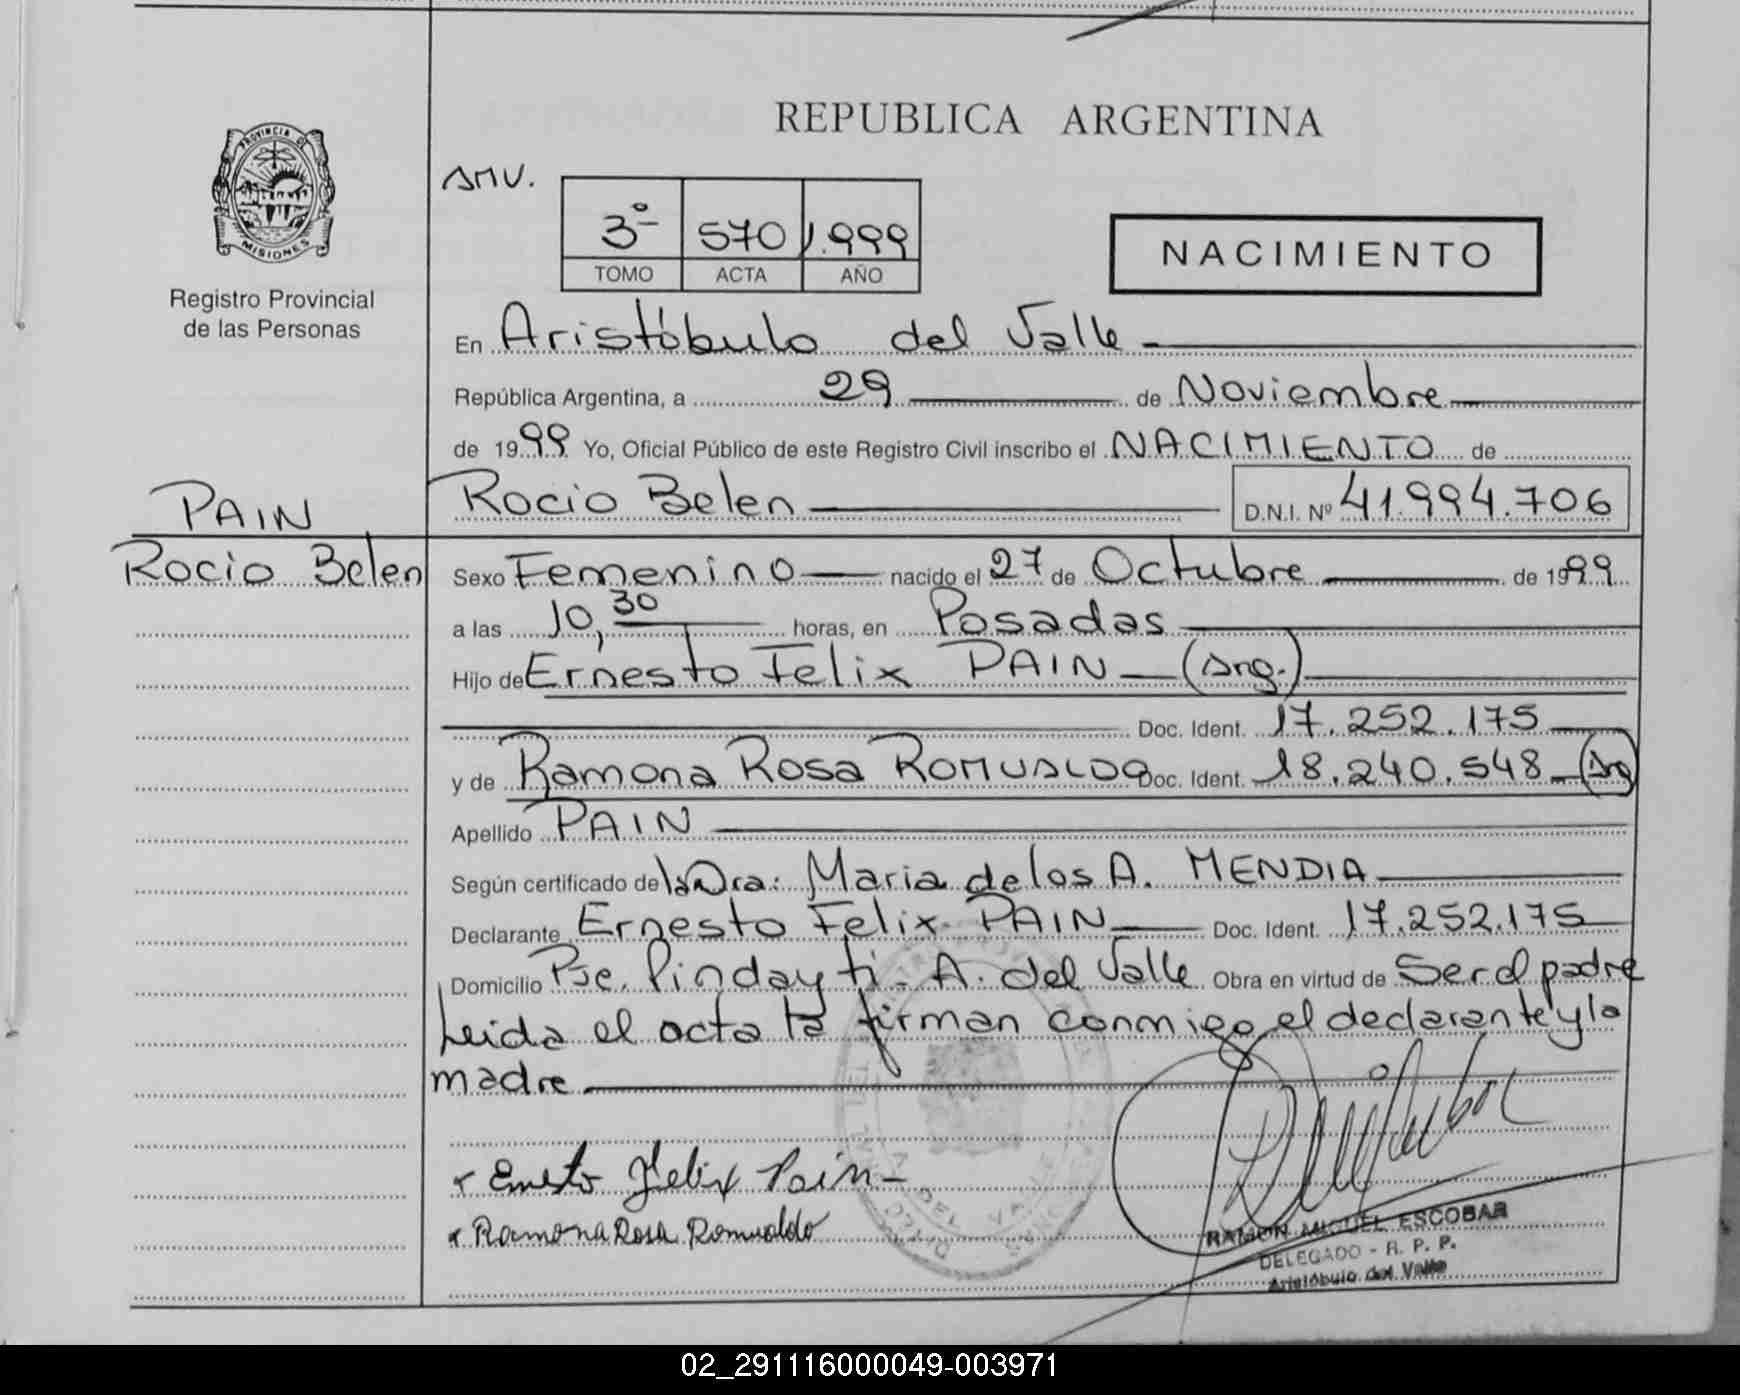 REPUBLICA ARGENTINA
PROVINCIA DE
MISIONES
Registro Provincial
de las Personas
AMV.
3º 570 1.999
TOMO ACTA AÑO
NACIMIENTO
En Aristóbulo del Valle
República Argentina, a 29 de Noviembre
de 1999 Yo, Oficial Público de este Registro Civil inscribo el NACIMIENTO de
PAIN
Rocio Belen
Rocio Belen D.N.I. Nº 41.994.706
Sexo Femenino nacido el 27 de Octubre de 1999
a las 10,30 horas, en Posadas
Hijo de Ernesto Felix PAIN (Arg.)
Doc. Ident. 17.252.175
y de Ramona Rosa ROMUALDO Doc. Ident. 18.240.548 (Arg
Apellido PAIN
Según certificado de la Dra: Maria de los A. MENDIA
Declarante Ernesto Felix PAIN Doc. Ident. 17.252.175
Domicilio Pje. Pindayti - A. del Valle Obra en virtud de Ser el padre
Leida el acta la firman conmigo el declarante y la
madre
Ernesto Felix Pain
Ramona Rosa Romualdo
RAMON MIGUEL ESCOBAR
DELEGADO - R. P. P.
Aristóbulo del Valle
02_291116000049-003971